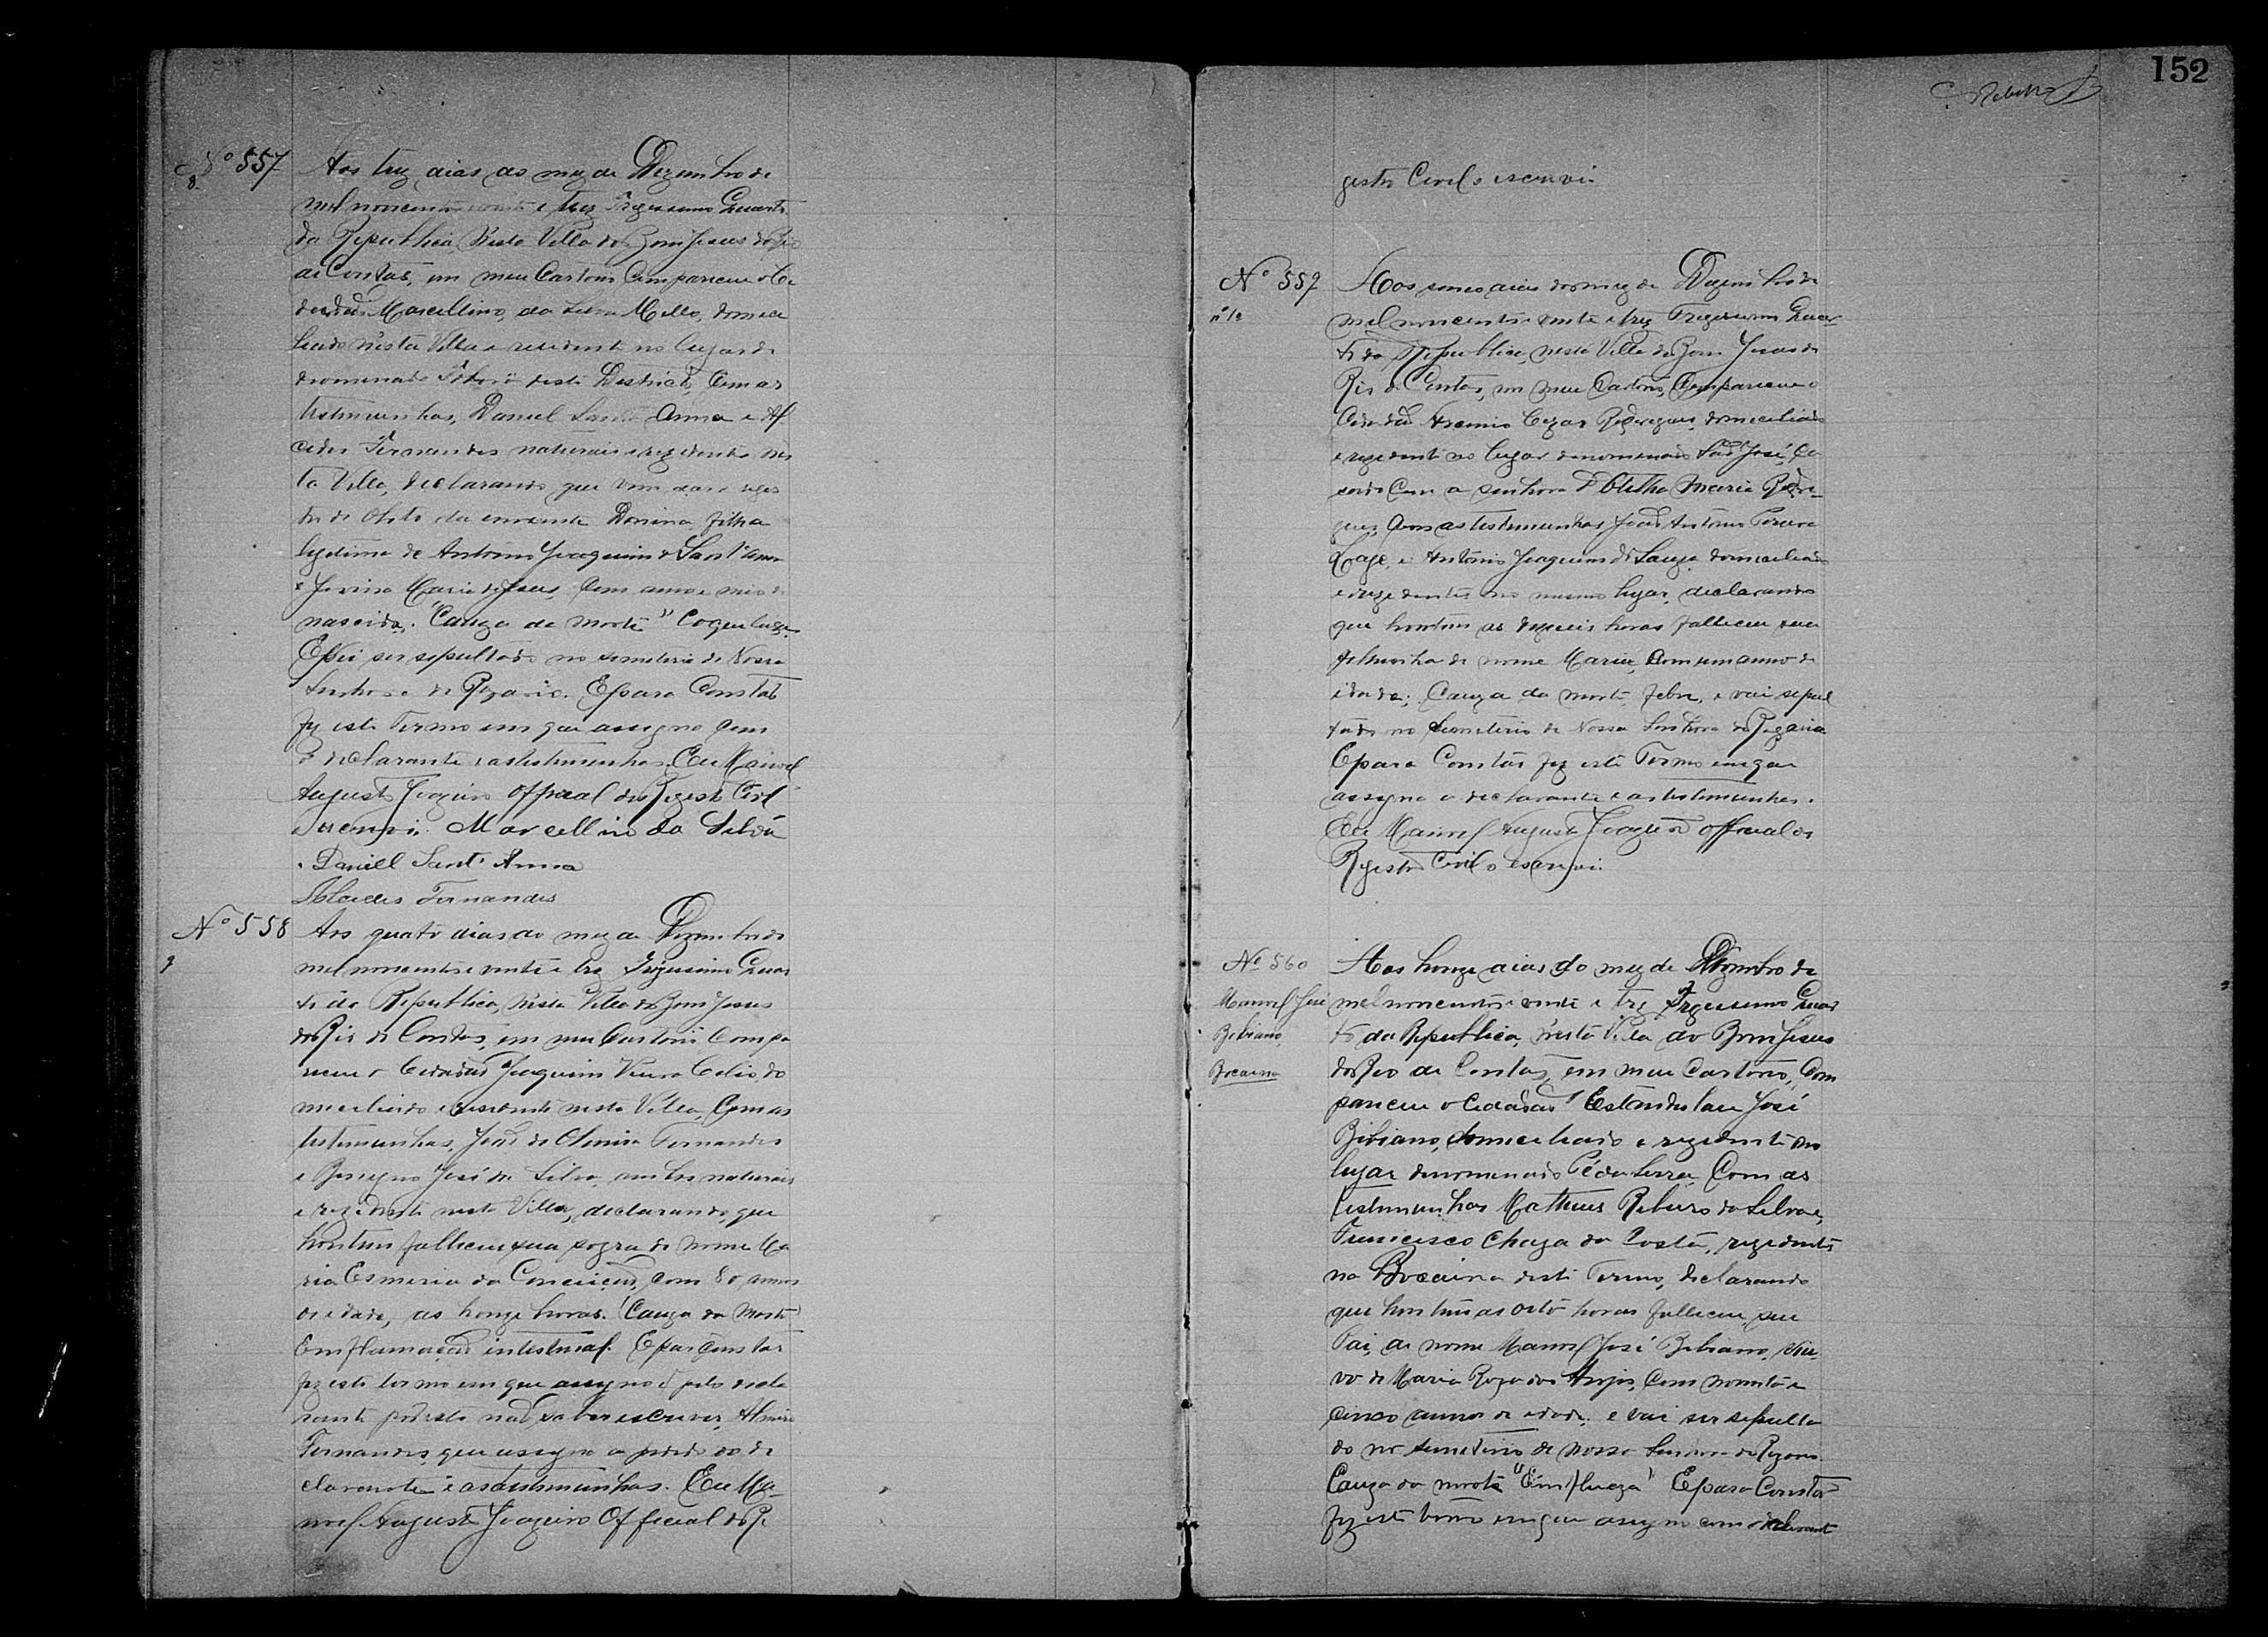 152
Nº 557
8
Aos trez dias do mez de Dezembro de
mil novecentos e vinte e trez Trigessimo Quarto
da Republica, N'esta Villa do Bom Jesus do Rio
de Contas, em meu Cartorio Compareceu o Ci
dadão Marcellino da Silva Mello, domici
liado n'esta Villa e residente no lugar de
nominado deste Districto, Com as
testimunhas, Daniel Sant' Anna e Al
cides Fernandes naturais e rezidentes nes
ta Villa, declarando que vem dar o regis
tro de Obito da inocente filha
legitima de Antonio Joaquim de Sant'Anna
e Maria de Jesus, Com anno e meio de
nascida. Cauza da morte "Coqueluxe"
E foi ser sepultado no semeterio de Nossa
Senhora do Rozario. E para Constar
fiz este Termo em que assigno Com
o declarante e as testimunhas. Eu Manoel
Augusto Joazeiro Official do Registo Civil
o escrevi. Marcellino da Silva
Daniell Sant' Anna
Alcides Fernandes
Nº 558
9
Aos quatro dias do mez de Dezembro de
mil novecentos e vinte e trez Trigessimo Quar
to da Republica, N'esta Villa do Bom Jesus
do Rio de Contas, em meu Cartorio Compa
receu o Cidadão Joaquim Vieira do
meciliado e residente nesta Villa, Com as
testimunhas, João de Oliveira Fernandes
e José da Silva, ambos naturais
e rezidente nesta Villa, declarando, que
hontem falleceu sua sogra de nome Ma
ria Esmeria da Conceição, com 80 annos
de idade, as honze horas. Cauza da Morte
Emflamação intestinal. E para Constar
fiz este termo em que assigno e pelo decla
rante por este não saber escrever,
Fernandes, que assigna a pedido do de
clarante e as testimunhas. Eu Ma-
noel Augusto Joazeiro Official do Re
gistro Civil o escrevi.
Nº 559
Aos sinco dias do mez de Dezembro de
mil novecentos e vinte e trez Trigessimo Quar-
to da Republica, nesta Villa do Bom Jesus do
Rio de Contas, em meu Cartorio, Compareceu o
Cidadão Cezar Rodrigues, domiciliado
e rezidente no lugar denominado São José, Ca
sado Com a senhora Maria Rodri-
gues, Com as testimunhas João Antonio Pereira
Lage, e Antonio Joaquim de Souza domiciliado
e rezidentes no mesmo lugar, declarando
que hontem as horas falleceu sua
filhinha de nome Maria, Com um anno de
idade; Cauza da morte, febre, e vai sepul
tado no Semeterio de Nossa Senhora do Rozario
E para Constar fiz este Termo em que
assigno o declarante e as testimunhas.
Eu Manoel Augusto Joazeiro official do
Registro Civil o escrevi.
Nº 560
Manoel José
Bibiano
Bocaina
Aos honze dias do mez de Dezembro de
mil novecentos e vinte e trez Trigessimo Quar
to da Republica, N'esta Villa do Bom Jesus
do Rio de Contas, em meu Cartorio, Com
pareceu o Cidadão Estandislau José
Bibiano, domiciliado e rezidente no
lugar denominado Pé da Serra, Com as
testimunhas Matheus Ribeiro da Silva e,
Francisco Chaga da Costa, rezidentes
na Bocaina deste Termo, declarando
que hontem as oito horas falleceu, seu
Pai, de nome Manoel José Bibiano, viu-
vo de Maria Roza dos Anjos, Com noventa e
cinco annos de idade, e vai ser sepulta
do no semeterio de Nossa Senhora do Rozario.
Cauza da morte "Emflueza" E para Constar
fiz este termo em que assigno com o declarante